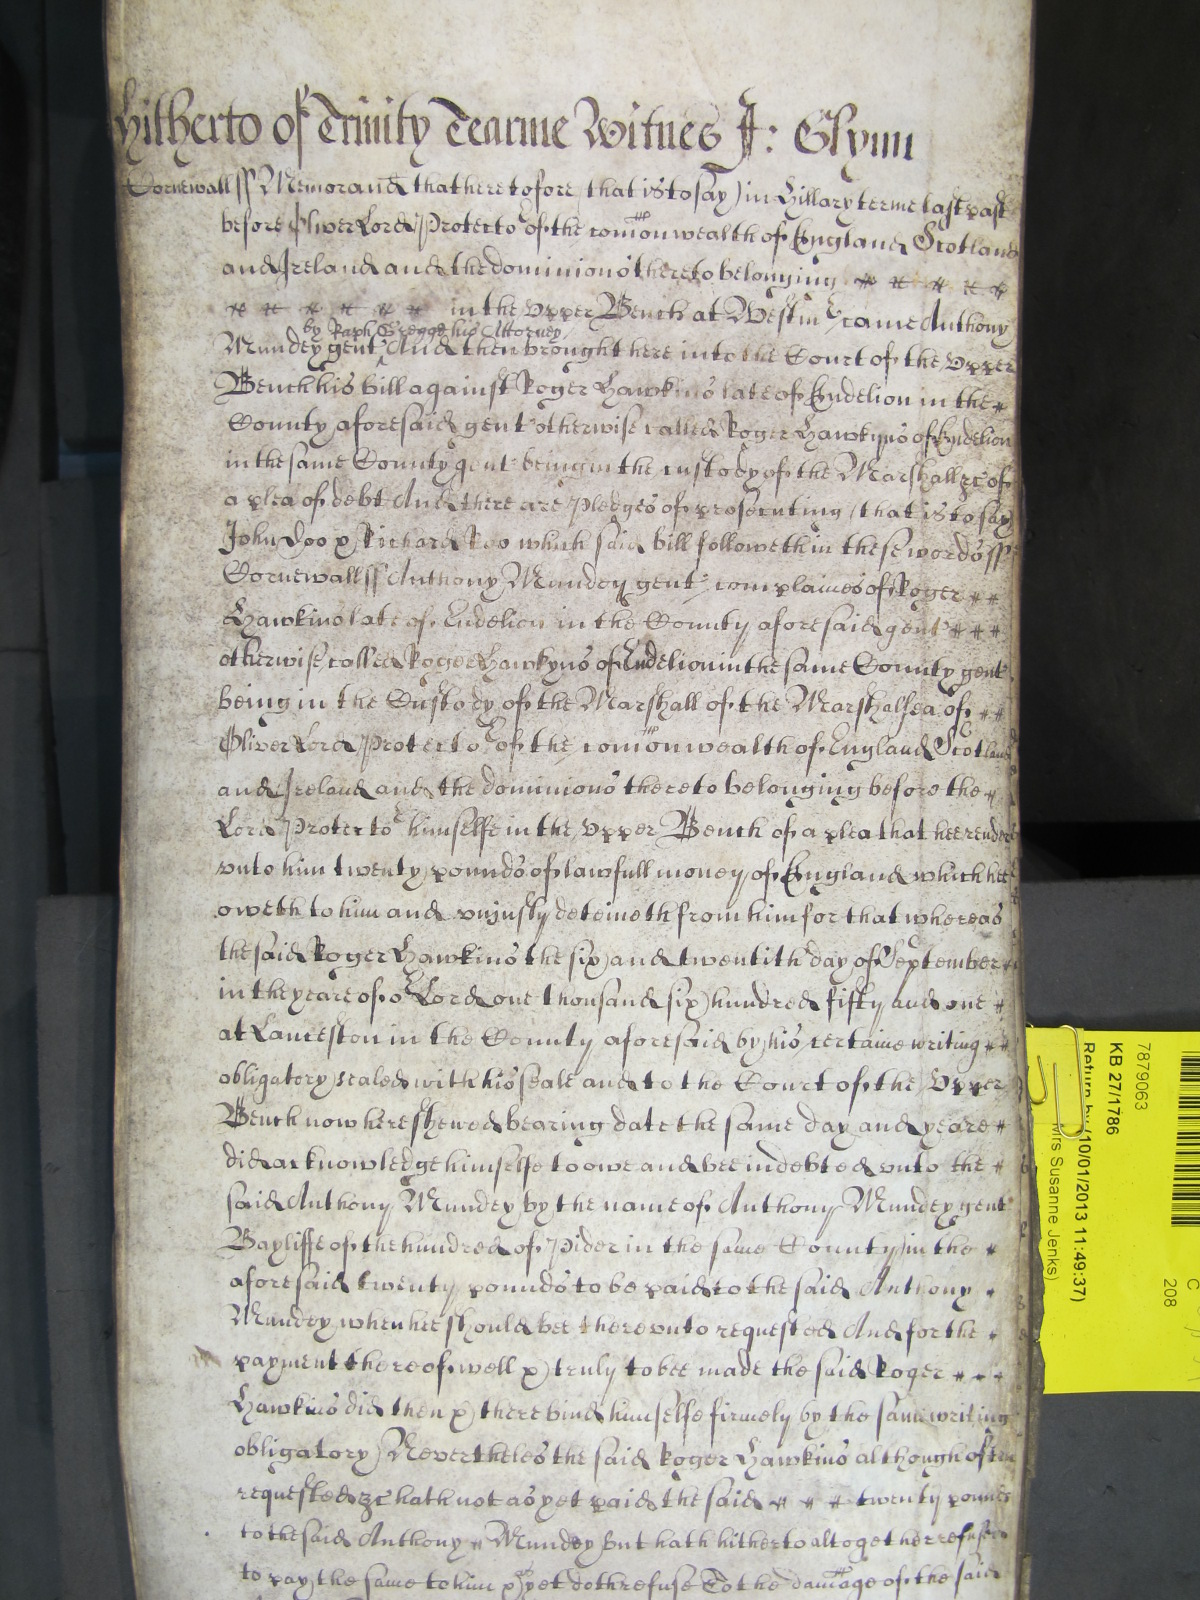 Hitherto of Trinity Tearme Witnes J: Glynn
Cornewall ss Memorand that heretofore (that is to say) in Hillary terme last past
before Oliver Lord Protector of the comonwealth of England Scotland
and Ireland and the dominions thereto belonging
in the Upper Bench at Westmr came Anthony
by Raph Gregge his Attorney
Mundey gent And then brought here into the Court of the Upper
Bench his bill against Roger Hawkins late of Endelion in the
County aforesaid gent otherwise called Roger Hawkyns of Endelion
in the same County gent being in the custody of the Marshall &c of
a plea of debt And there are Pledges of prosecuting (that is to say)
John Doo & Richard Roo which said bill followeth in these words ss
Cornewall ss Anthony Mundey gent complaines of Roger
Hawkins late of Endelion in the County aforesaid gent
otherwise called Roger Hawkyns of Endelion in the same County gent
being in the Custody of the Marshall of the Marshalsea of
Oliver Lord Protector of the comonwealth of England Scotland
and Ireland and the dominions thereto belonging before the
Lord Protector himselfe in the Upper Bench of a plea that hee render
unto him twenty pounds of lawfull money of England which hee
oweth to him and uniustly deteineth from him for that whereas
the said Roger Hawkins the six and twentith day of September
in the yeare of or Lord one thousand six hundred fifty and one
at Lanceston in the County aforesaid by his certaine writing
obligatory sealed with his seale and to the Court of the Upper
Bench now here shewed bearing date the same day and yeare
did acknowledge himselfe to owe and bee indebted unto the
said Anthony Mundey by the name of Anthony Mundey gent
Bayliffe of the hundred of Pider in the same County in the
aforesaid twenty pounds to be paid to the said Anthony
Mundey when hee should bee thereunto requested And for the
payment thereof well & truly to bee made the said Roger
Hawkins did then & there bind himselfe firmely by the same writing
obligatory Nevertheles the said Roger Hawkins although often
requested &c hath not as yet paid the said twenty pounds
to the said Anthony Mundey but hath hitherto altogether refused
to pay the same to him & yet doth refuse To the damage of the said
7879063
KB 27/1786
Return by (10/01/2013 11:49:37)
Mrs Susanne Jenks)
C
208